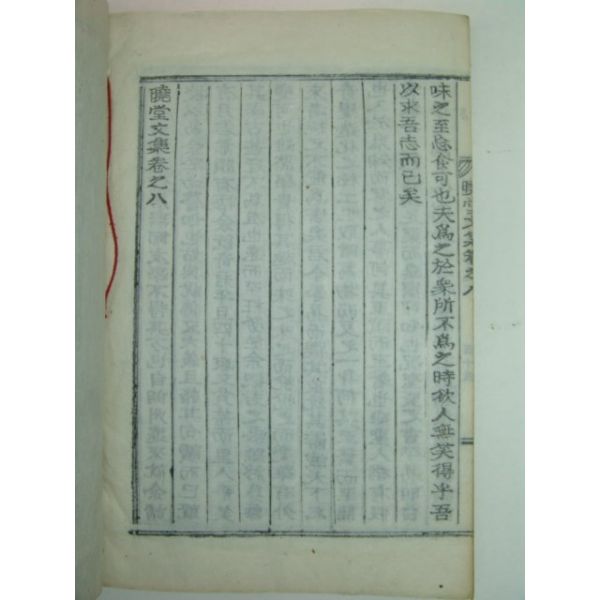 味之至忘食可也夫爲之於衆所不爲之時欲人無笑得乎吾
以求吾志而已矣
曉堂文集卷之八
曉堂文集卷之八